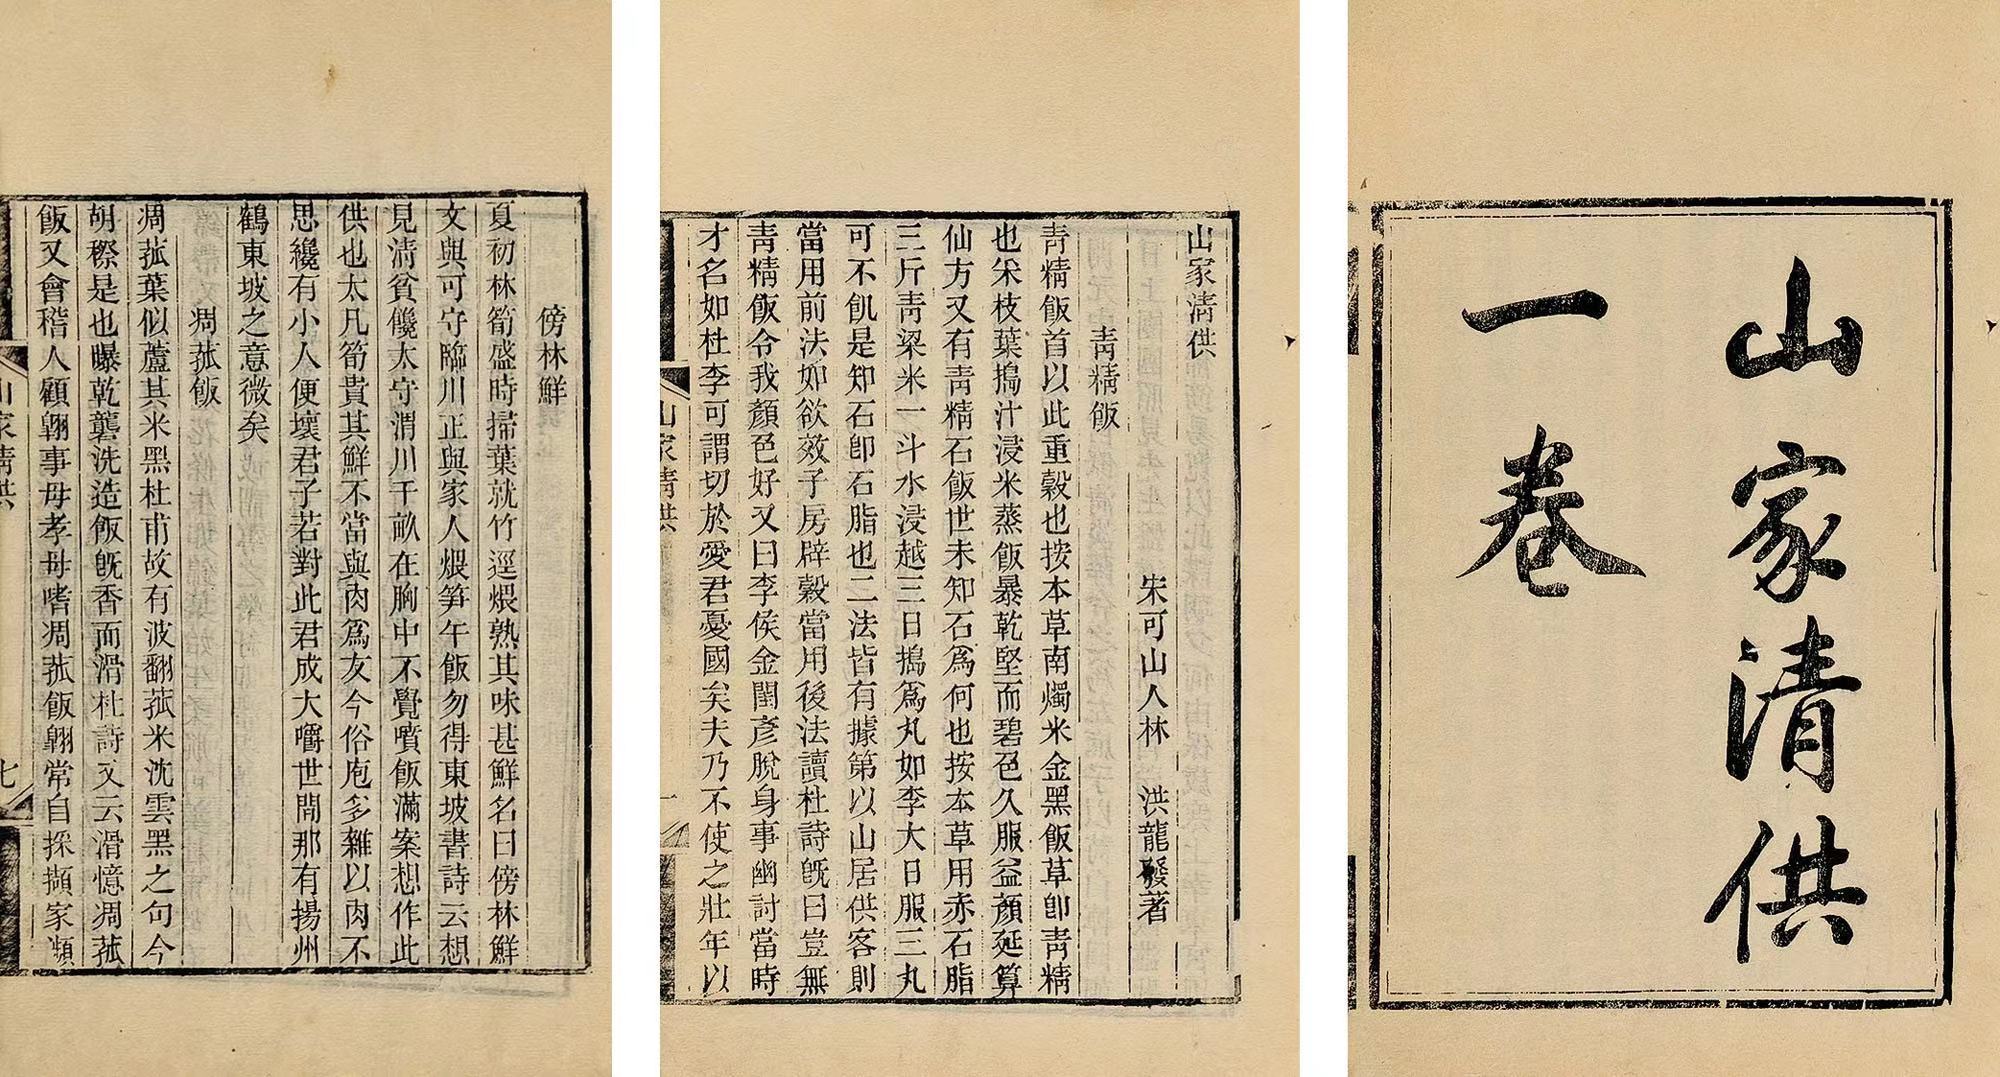 山家清供
一卷
山家清供
宋可山人林　洪龍發著
青精飯
青精飯首以此重穀也按本草南燭木金黑飯草卽青精
也采枝葉搗汁浸米蒸飯暴乾堅而碧色久服益顏延算
仙方又有青精石飯世未知石爲何也按本草用赤石脂
三斤青粱米一斗水浸越三日搗爲丸如李大日服三丸
可不飢是知石卽石脂也二法皆有據第以山居供客則
當用前法如欲效子房辟穀當用後法讀杜詩旣曰豈無
青精飯令我顏色好又曰李侯金閨彥脫身事幽討當時
才名如杜李可謂切於愛君憂國矣夫乃不使之壯年以
山家清供
一
傍林鮮
夏初林筍盛時掃葉就竹逕煨熟其味甚鮮名曰傍林鮮
文與可守臨川正與家人煨筍午飯勿得東坡書詩云想
見清貧饞太守渭川千畝在胸中不覺噴飯滿案想作此
供也太凡筍貴其鮮不當與肉爲友今俗庖多雜以肉不
思纔有小人便壞君子若對此君成大嚼世間那有揚州
鶴東坡之意微矣
凋菰飯
凋菰葉似蘆其米黑杜甫故有波翻菰米沈雲黑之句今
胡穄是也曝乾礱洗造飯旣香而滑杜詩又云滑憶凋菰
飯又會稽人顧翱事母孝母嗜凋菰飯翱常自採擷家瀕
山家清供
七